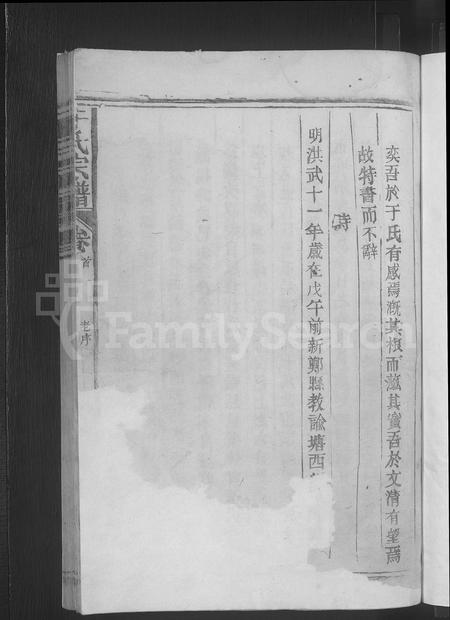 奕吾於于氏有感焉溉其根而滋其實吾於文清有望焉
故特書而不辭
時
明洪武十一年歲在戊午前新鄭縣教諭塘西
于氏宗譜
卷首
老序
FamilySearch